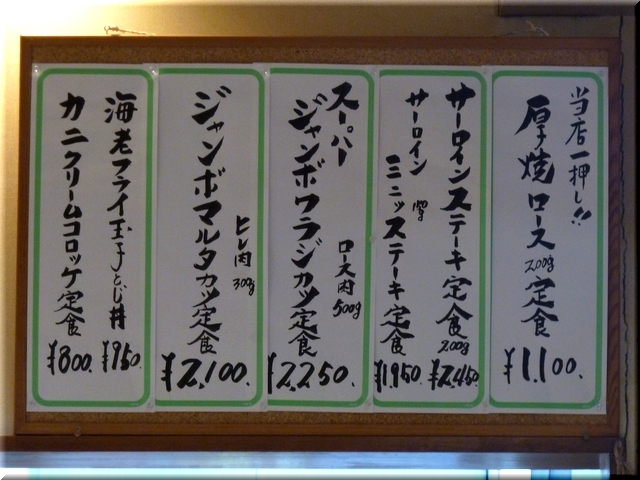 当店一押し!!
厚焼ロース200g定食
¥1,100.
サーロインステーキ定食200g
¥2,450
サーロインミニッステーキ定食
¥1950.
スーパー
ジャンボワラジカツ定食
ロース肉500g
¥2,250.
ジャンボマルタカツ定食
ヒレ肉300g
¥2,100.
海老フライ玉子とじ丼
¥950
カニクリームコロッケ定食
¥800.